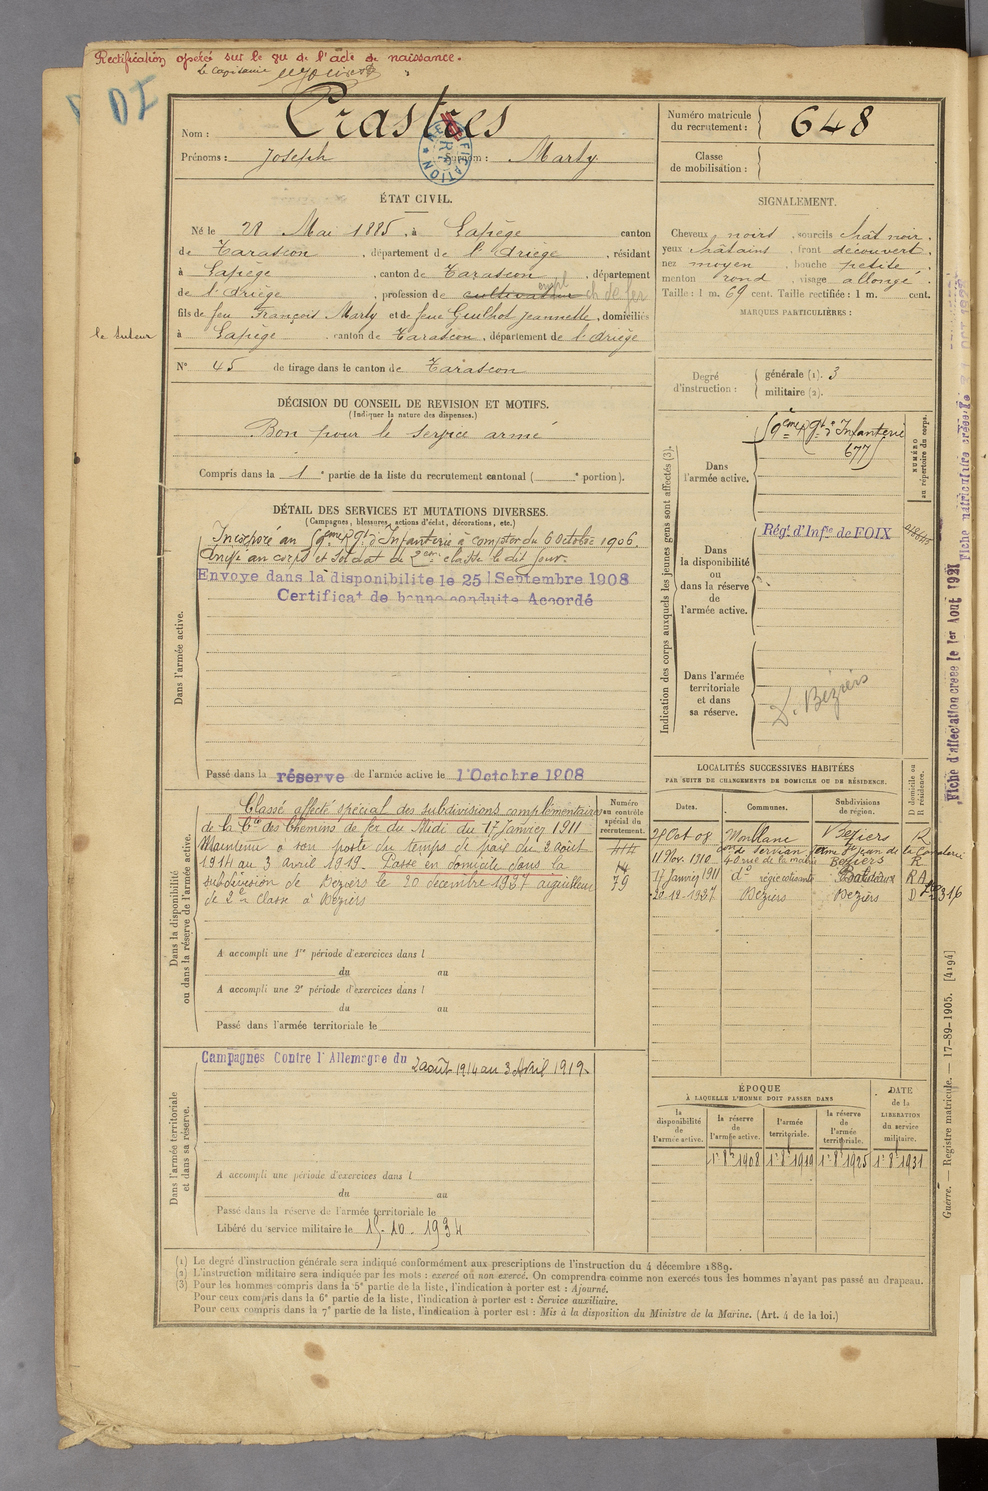 Rectification opérée sur le vu de l'acte de naissance.
Le Capitaine
DI
Nom : Crastres
Prénoms : Joseph Surnom : Marty
RECTIFICATION
Numéro matricule du recrutement : 648
Classe de mobilisation :
ÉTAT CIVIL.
Né le 28 Mai 1885, à Lapège canton
de Tarascon, département de l'Ariège, résidant
à Lapège, canton de Tarascon, département
de l'Ariège, profession de cultivateur empl ch de fer
fils de feu François Marty et de feue Guilhot Jeannette, domiciliés
le tuteur
à Lapège, canton de Tarascon, département de l'Ariège
N° 45 de tirage dans le canton de Tarascon
SIGNALEMENT.
Cheveux noirs, sourcils chât noir,
yeux châtains, front découvert,
nez moyen, bouche petite,
menton rond, visage allongé,
Taille : 1 m. 69 cent. Taille rectifiée : 1 m. cent.
MARQUES PARTICULIÈRES :
Degré d'instruction : générale (1). 3
militaire (2).
DÉCISION DU CONSEIL DE REVISION ET MOTIFS.
(Indiquer la nature des dispenses.)
Bon pour le service armé
Compris dans la 1e partie de la liste du recrutement cantonal ( e portion).
DÉTAIL DES SERVICES ET MUTATIONS DIVERSES.
(Campagnes, blessures, actions d'éclat, décorations, etc.)
Dans l'armée active.
Incorporé au 59eme Rgt d'Infanterie à compter du 6 Octobre 1906.
Arrivé au corps et soldat de 2eme classe le dit jour.
Envoyé dans la disponibilité le 25 Septembre 1908
Certificat de bonne conduite Accordé
Passé dans la réserve de l'armée active le 1 Octobre 1908
Indication des corps auxquels les jeunes gens sont affectés (3).
NUMÉRO au répertoire du corps.
Dans l'armée active.
59eme Rgt d'Infanterie
677
Dans la disponibilité ou dans la réserve de l'armée active.
Régt d'Infie de FOIX
Dans l'armée territoriale et dans sa réserve.
D. Béziers
Fiche d'affectation créée le 1er Aout 1921
Fiche matriculaire créée le
Dans la disponibilité ou dans la réserve de l'armée active.
Numéro au contrôle spécial du recrutement.
Classé affecté spécial des subdivisions complémentaires
de la Cie des Chemins de fer du Midi du 17 Janvier 1911
Maintenu à son poste du temps de paix du 2 août
1914 au 3 avril 1919. Passé en domicile dans la
subdivision de Béziers le 20 décembre 1927 aiguilleur
de 2e classe à Béziers
79
A accompli une 1re période d'exercices dans l
du au
A accompli une 2e période d'exercices dans l
du au
Passé dans l'armée territoriale le
LOCALITÉS SUCCESSIVES HABITÉES
PAR SUITE DE CHANGEMENTS DE DOMICILE OU DE RÉSIDENCE.
Dates. Communes. Subdivisions de région. D domicile ou R résidence.
28 Oct 08 Montblanc Béziers R
con de Servian ferme St Jean de la Cavalerie
11 Nov. 1910 40 rue de la mairie Béziers R
17 Janvier 1911 do Bordeaux R A
20-12-1927 Béziers Béziers D 316
Dans l'armée territoriale et dans sa réserve.
Campagnes Contre l'Allemagne du 2 août 1914 au 3 Avril 1919.
A accompli une période d'exercices dans l
du au
Passé dans la réserve de l'armée territoriale le
Libéré du service militaire le 15-10-1934
ÉPOQUE
À LAQUELLE L'HOMME DOIT PASSER DANS
DATE de la LIBÉRATION du service militaire.
la disponibilité de l'armée active. la réserve de l'armée active. l'armée territoriale. la réserve de l'armée territoriale.
1r 8e 1908 1r 8e 1919 1r 8e 1925 1r 8e 1931
Guerre. — Registre matricule. — 17-89-1905. [4194]
(1) Le degré d'instruction générale sera indiqué conformément aux prescriptions de l'instruction du 4 décembre 1889.
(2) L'instruction militaire sera indiquée par les mots : exercé ou non exercé. On comprendra comme non exercés tous les hommes n'ayant pas passé au drapeau.
(3) Pour les hommes compris dans la 5e partie de la liste, l'indication à porter est : Ajourné.
Pour ceux compris dans la 6e partie de la liste, l'indication à porter est : Service auxiliaire.
Pour ceux compris dans la 7e partie de la liste, l'indication à porter est : Mis à la disposition du Ministre de la Marine. (Art. 4 de la loi.)